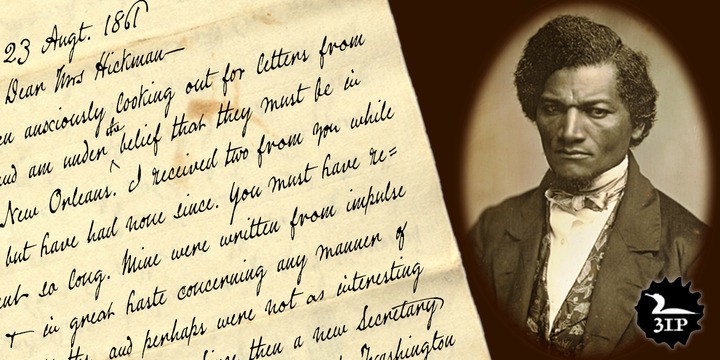 23 Augt. 1861
Dear Mrs Hickman—
anxiously looking out for letters from
and am under the belief that they must be in
New Orleans. I received two from you while
but have had none since. You must have re=
so long. Mine were written from impulse
in great haste concerning any manner of
and perhaps were not as interesting
then a new Secretary
Washington
3IP